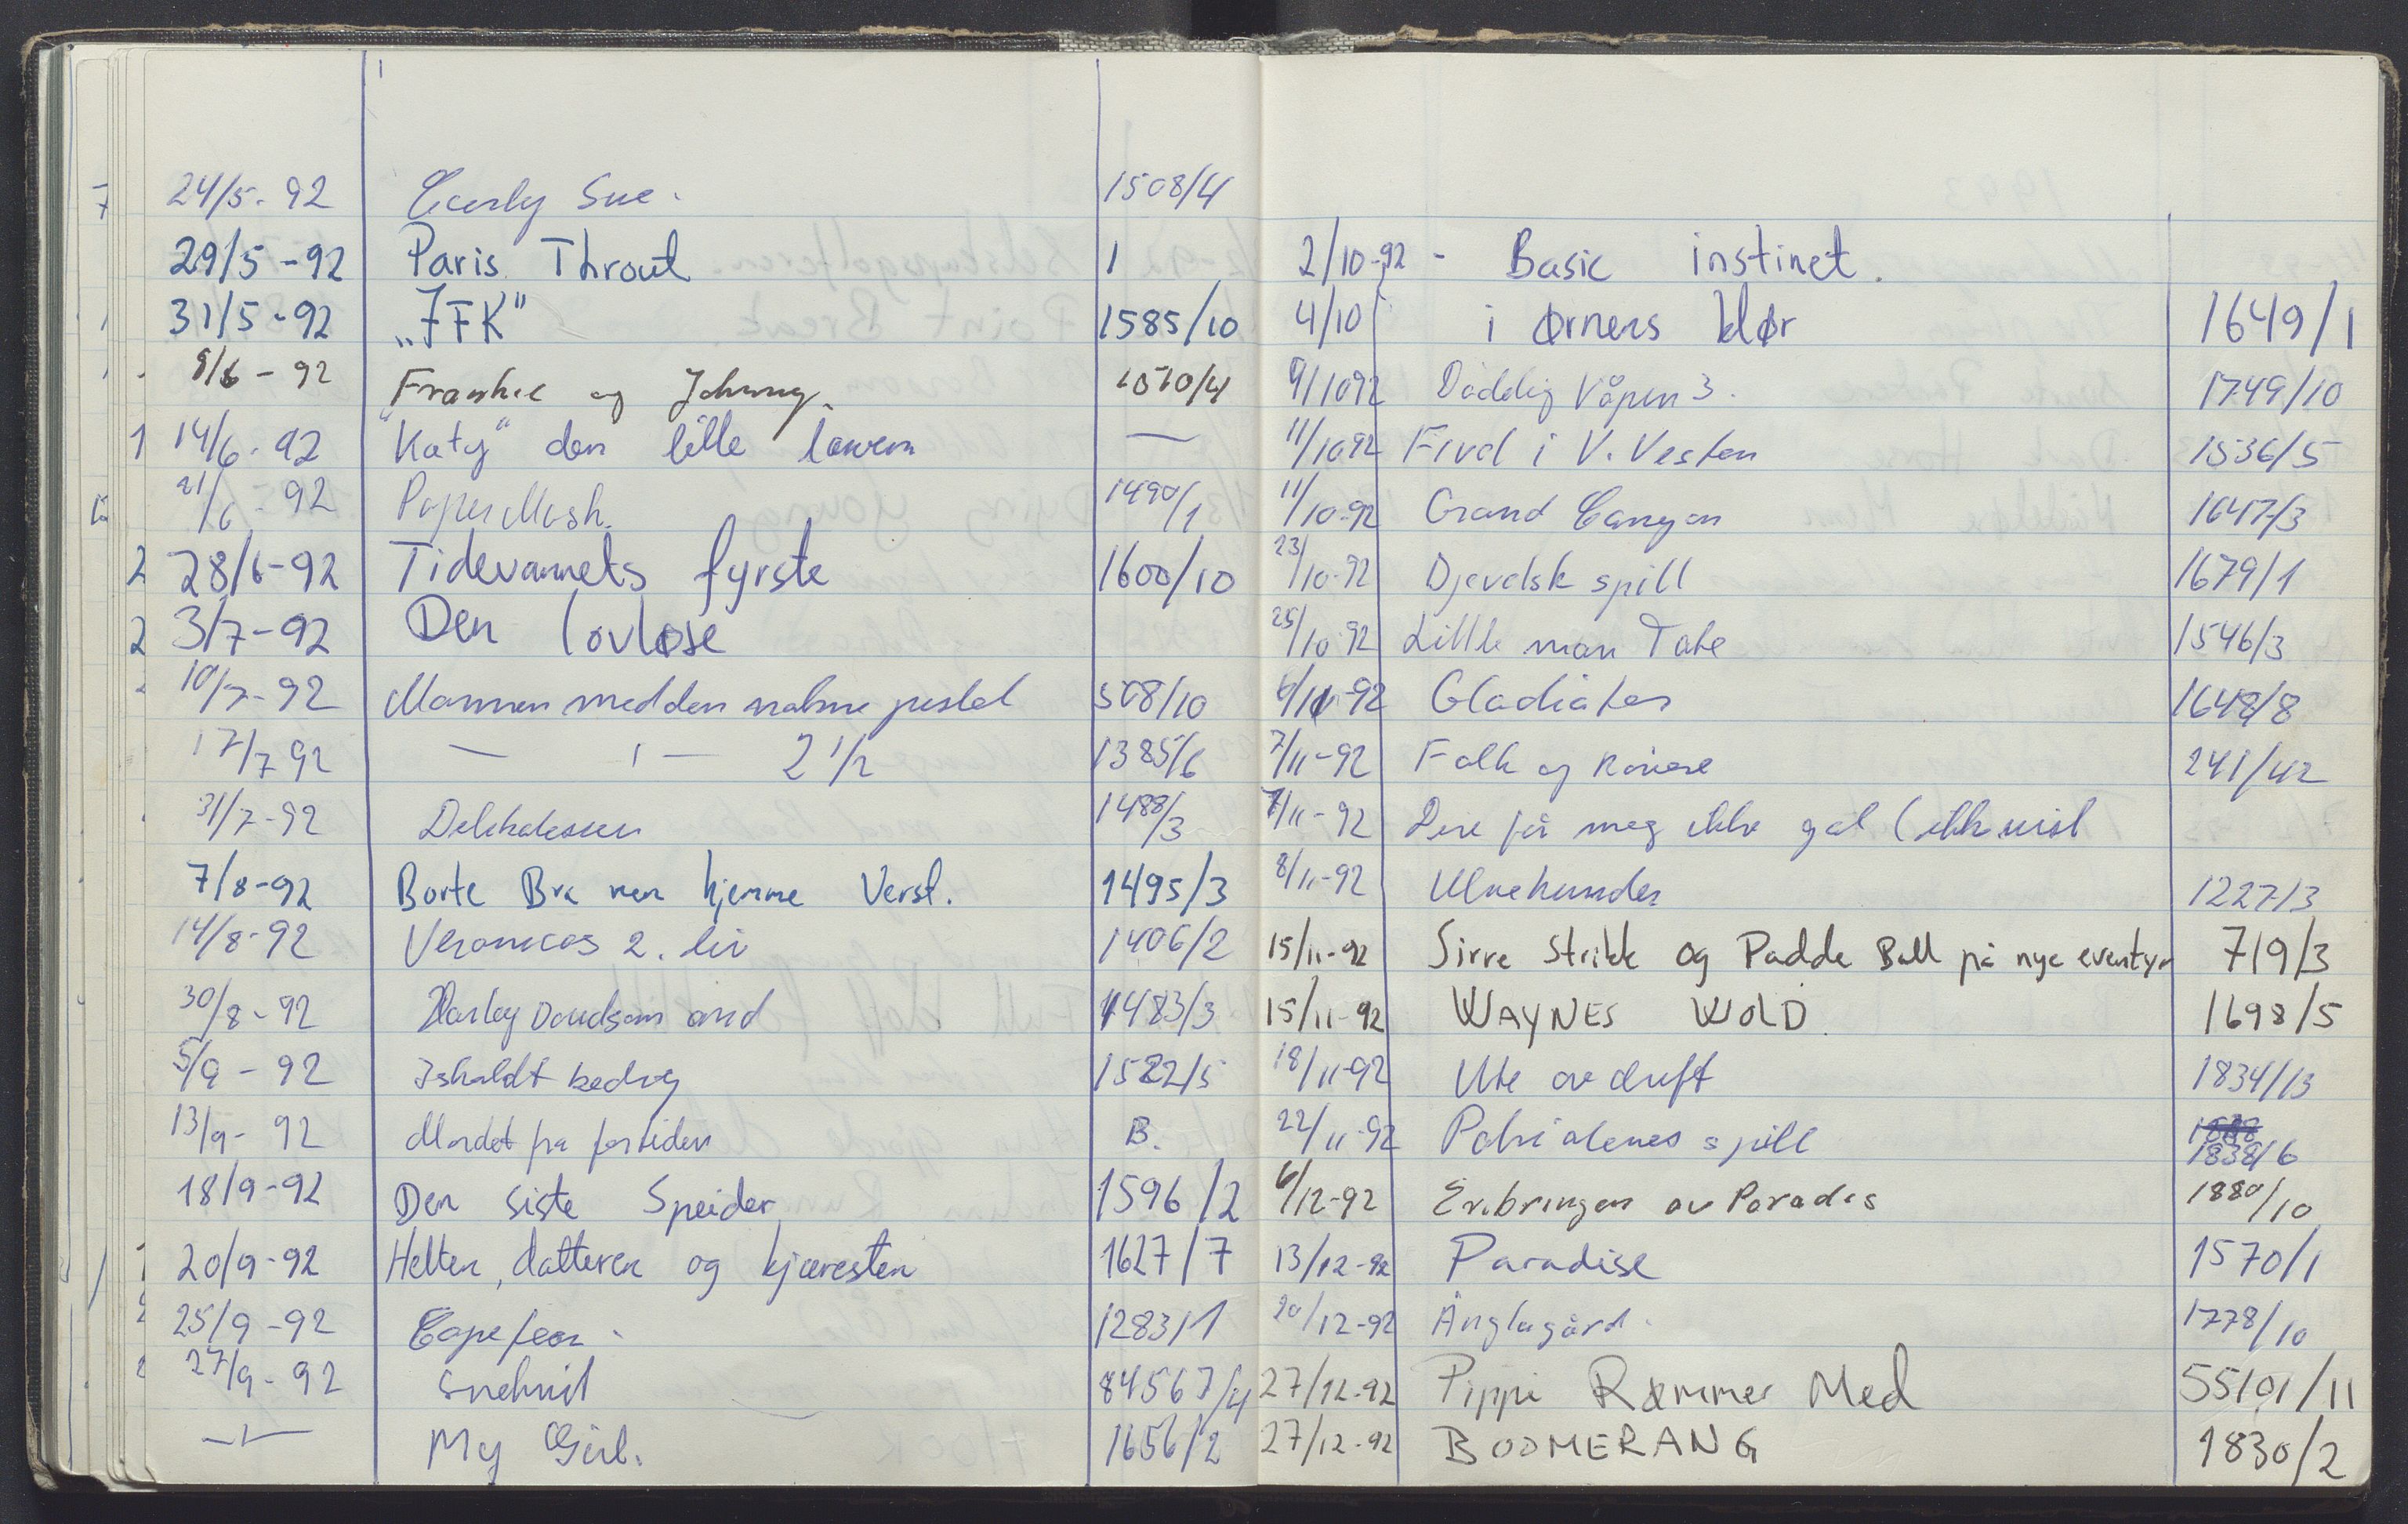 24/5. 92 Curly Sue. 1508/4
29/5-92 Paris Throut 1
31/5-92 „JFK" 1585/10
8/6-92 Frankie og Johnny. 1510/4
1 14/6.92 "Katy" den lille larven —
21/6-92 PaperMash. 1490/1
2 28/6-92 Tidevannets fyrste 1600/10
2 3/7-92 Den lovløse
10/7-92 Mannen med den nakne pistol 508/10
17/7 92 — ı — 2 1/2 1385/6
31/7-92 Delikatessen 1488/3
7/8-92 Borte Bra men hjemme Verst. 1495/3
14/8-92 Veronicas 2. liv 1406/2
30/8-92 Harley Davdson and 1483/3
5/9-92 Iskaldt bedrag 1522/5
13/9-92 Mordet fra fortiden B.
18/9-92 Den siste Speider 1596/2
20/9-92 Helten, datteren og kjæresten 1627/7
25/9-92 Cape fear. 1283/1
27/9-92 snehvit 84567/4
—ı— My Girl. 1656/2
1993
2/10-92 - Basic instinct.
4/10 i ørnens klør 1649/1
9/1092 Dødelig Våpen 3. 1749/10
11/1092 Fivel i V. Vesten 1536/5
11/10-92 Grand Canyon 1647/3
23/10-92 Djevelsk spill 1679/1
25/10-92 Little man Tate 1546/3
6/11-92 Gladiator 1648/8
7/11-92 Folk og røvere 241/42
7/11-92 Dere får meg ikke gal (ikke vist
8/11-92 Ulvehunden 1227/3
15/11-92 Sirre Strikk og Padde Ball på nye eventyr 719/3
15/11-92 WAYNES WOLD. 1698/5
18/11-92 Ute av drift 1834/13
22/11-92 Patriotenes spill 1838/6
6/12-92 Erobringen av Paradis 1880/10
13/12-92 Paradise 1570/1
20/12-92 Änglagård. 1778/10
27/12-92 Pippi Rømmer Med 55101/11
27/12-92 BOOMERANG 1830/2